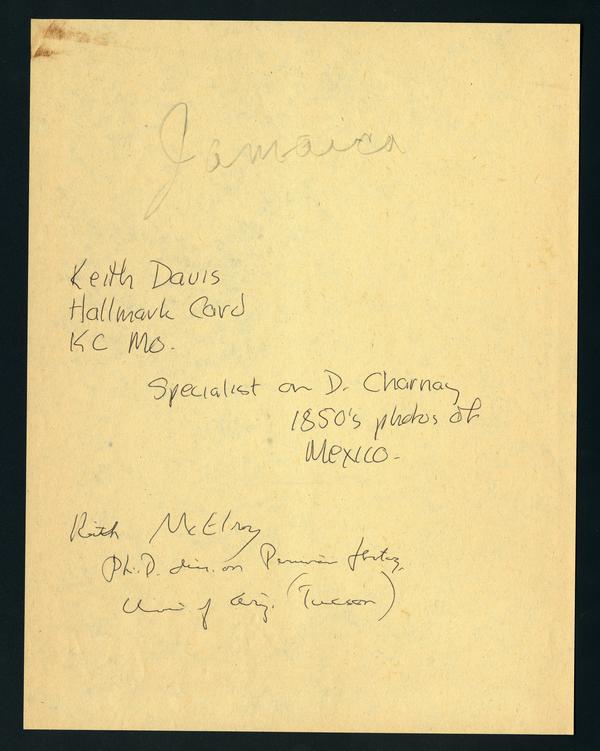 Jamaica
Keith Davis
Hallmark Card
KC Mo.
Specialist on D. Charnay
1850's photos of
Mexico.
Keith McElroy
Ph.D. diss. on Peruvian
Univ of Ariz. (Tucson)